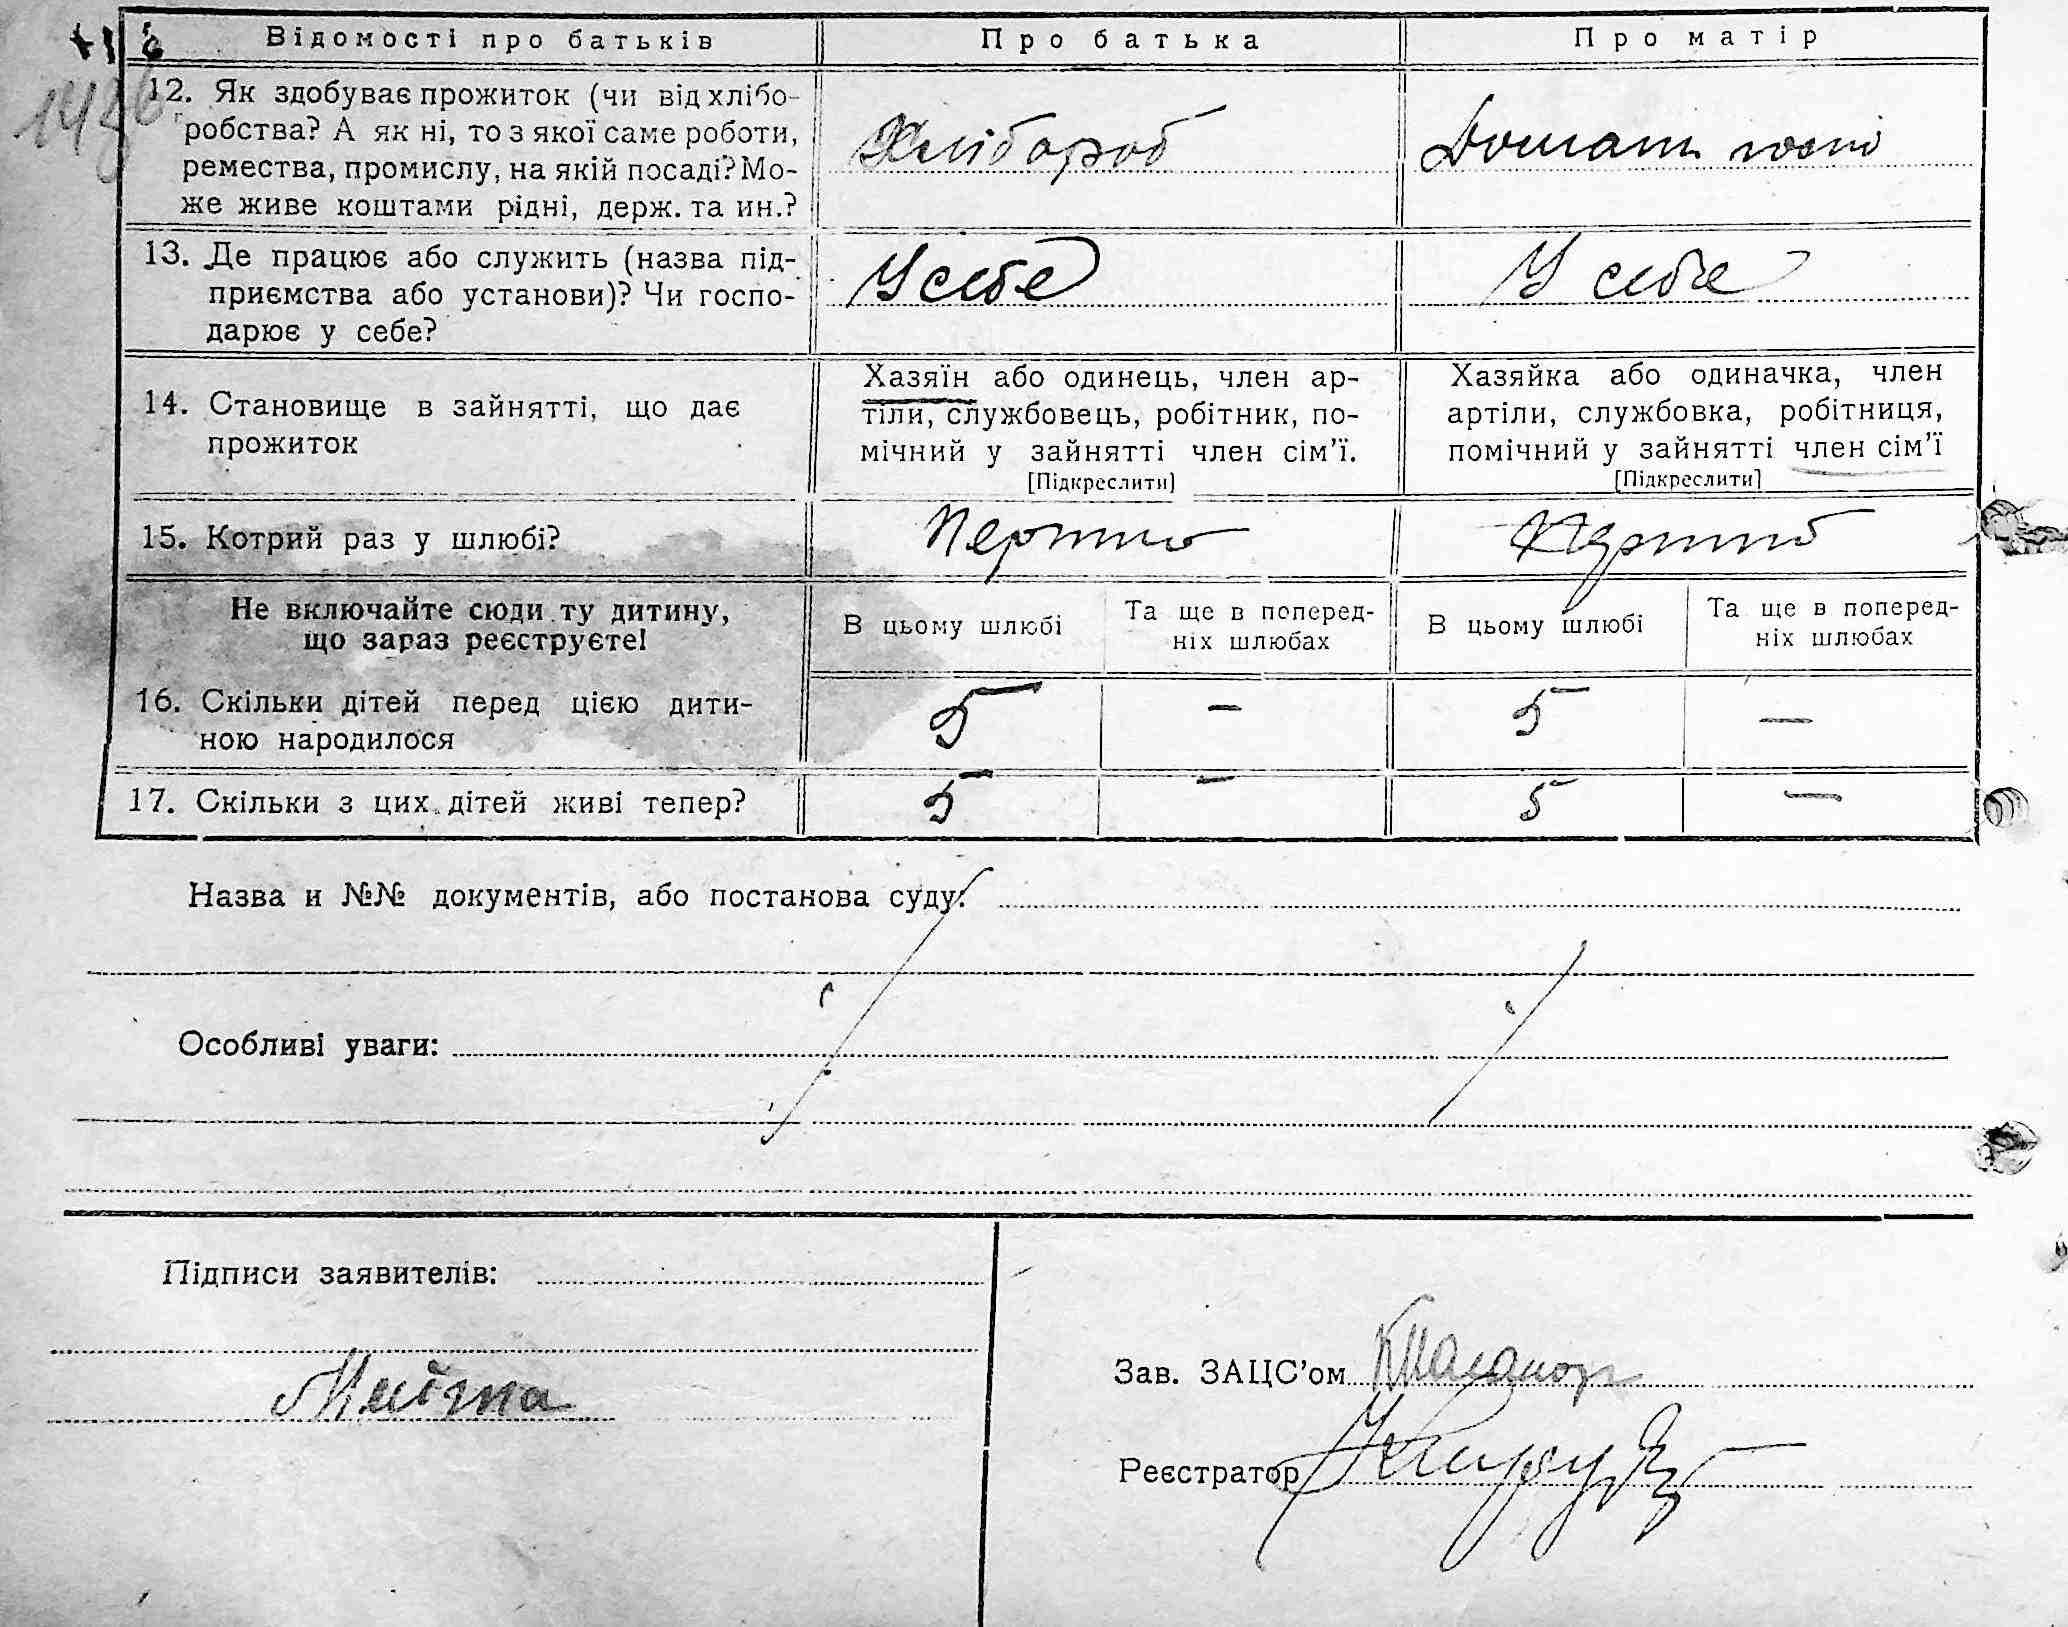 Відомості про батьків Про батька Про матір
148б
12. Як здобуває прожиток (чи від хлібо-
робства? А як ні, то з якої саме роботи,
ремества, промислу, на якій посаді? Мо-
же живе коштами рідні, держ. та ин.?
Хлібороб
Домашн госпо
13. Де працює або служить (назва під-
приємства або установи)? Чи госпо-
дарює у себе?
У себе
У себе
14. Становище в зайнятті, що дає
прожиток
Хазяїн або одинець, член ар-
тіли, службовець, робітник, по-
мічний у зайнятті член сім'ї.
[Підкреслити]
Хазяйка або одиначка, член
артіли, службовка, робітниця,
помічний у зайнятті член сім'ї
[Підкреслити]
15. Котрий раз у шлюбі?
Не включайте сюди ту дитину,
що зараз реєструєте!
В цьому шлюбі
Та ще в поперед-
ніх шлюбах
В цьому шлюбі
Та ще в поперед-
ніх шлюбах
16. Скільки дітей перед цією дити-
ною народилося
5 — 5 —
17. Скільки з цих дітей живі тепер?
5 — 5 —
Назва и №№ документів, або постанова суду:
Особливі уваги:
Підписи заявителів:
Зав. ЗАЦС'ом
Реєстратор